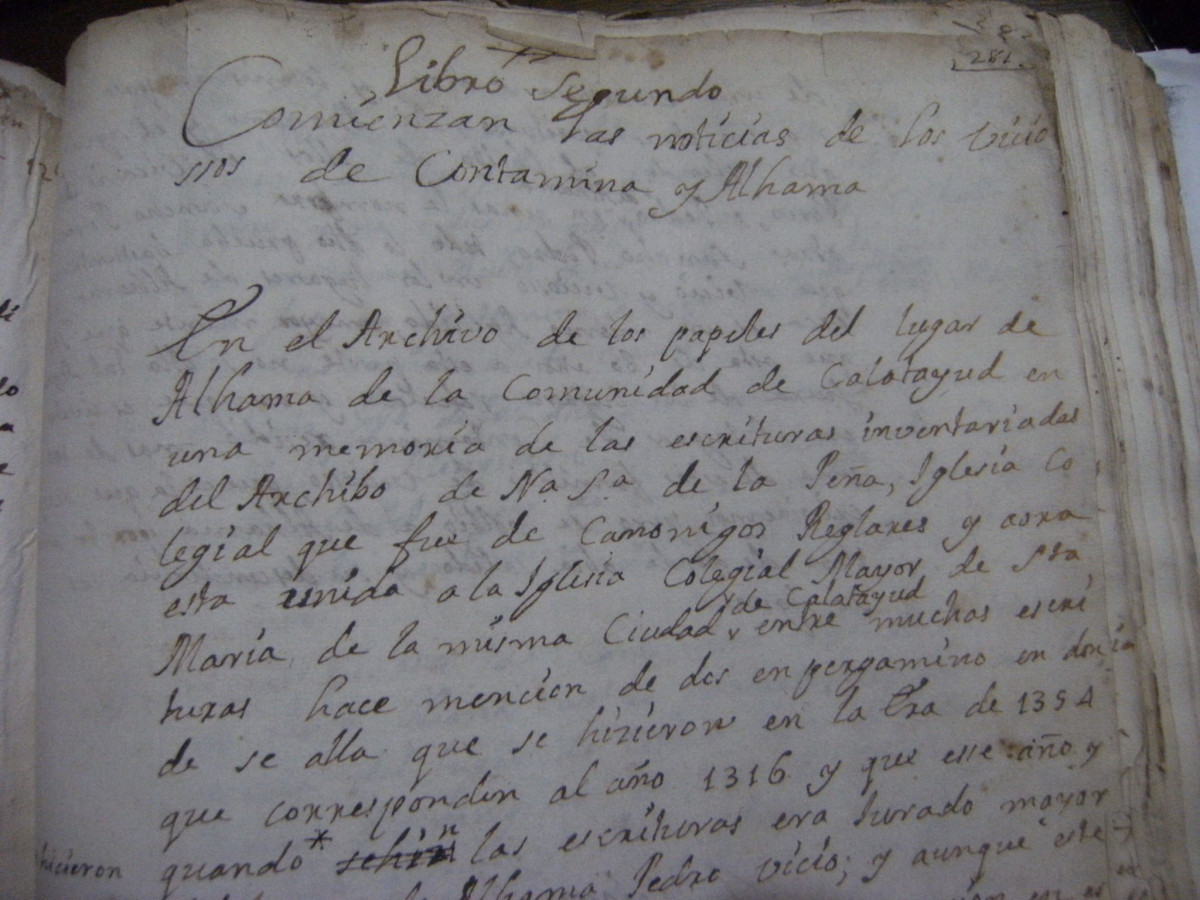 281.
Libro Segundo
Comienzan las noticias de los Vicio
ssos de Contamina y Alhama
En el Archivo de los papeles del lugar de
Alhama de la Comunidad de Calatayud en
una memoria de las escrituras inventariadas
del Archibo de Na Sa. de la Peña, Iglesia Co
legial que fue de Canonigos Reglares y aora
esta unida a la Iglesia Colegial Mayor de Sta
Maria, de la misma Ciudad de Calatayud entre muchas escri
turas hace mencion de dos en pergamino en don
de se alla que se hizieron en la Era de 1354
que corresponden al año 1316 y que esse año y
hicieron quando* las escrituras era Jurado mayor
Alhama Pedro Vicio; y aunque este